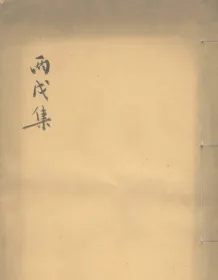 丙戌集